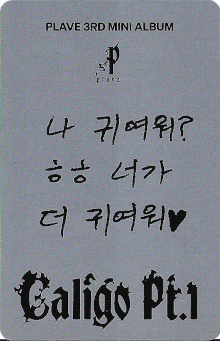 PLAVE 3RD MINI ALBUM
P
PLAVE
나 귀여워?
ㅎㅎ 너가
더 귀여워♥
Caligo Pt.1